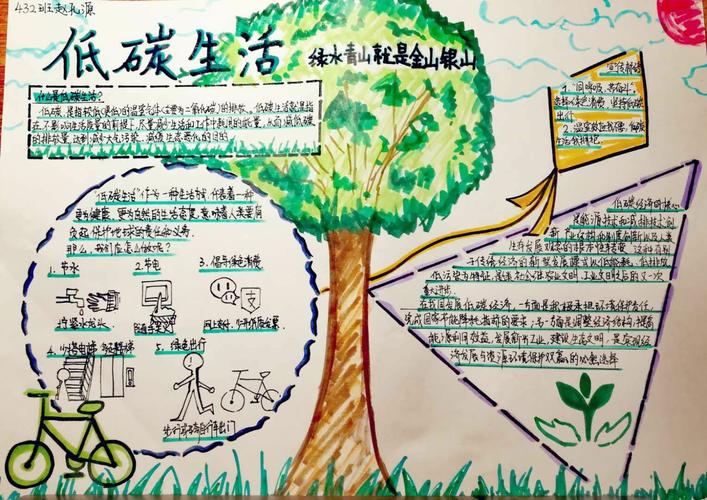 432班赵礼源
低碳生活
绿水青山就是金山银山
什么是低碳生活?
低碳,是指较低(更低)的温室气体(主要为二氧化碳)的排放。低碳生活就是指
在不影响生活质量的前提下,尽量减少生活和工作中耗用的能量,从而减低碳
的排放量,达到减少大气污染,减缓生态恶化的目的。
宣传标语
1、"同呼吸,共奋斗"
绿色消费,坚持低碳
出行
2、温室效应我控,低碳
生活我掌握。
"低碳生活"作为一种生活方式,代表着一种
更为健康、更为自然的生活态度,意味着人类要肩
负起保护地球的责任和义务。
那么,我们应怎么做呢?
1、节水
2、节电
3、倡导绿色消费
拧紧水龙头
网上支付,少用纸质发票
4、少搭电梯 多爬楼梯
5、绿色出行
步行或骑自行车出门
低碳经济的核心
是能源技术和减排技术创
新,产业结构和制度创新以及人类
生存发展观念的根本性转变,这种有别
于传统经济的新型发展模式以低能耗、低排放、
低污染为特征,是继农业文明、工业文明之后的又一次
重大进步。
在我国发展低碳经济,一方面是积极承担环境保护责任,
完成国家节能降耗指标的要求;另一方面是调整经济结构,提高
能源利用效益,发展新兴工业,建设生态文明,是实现经
济发展与资源环境保护双赢的必然选择